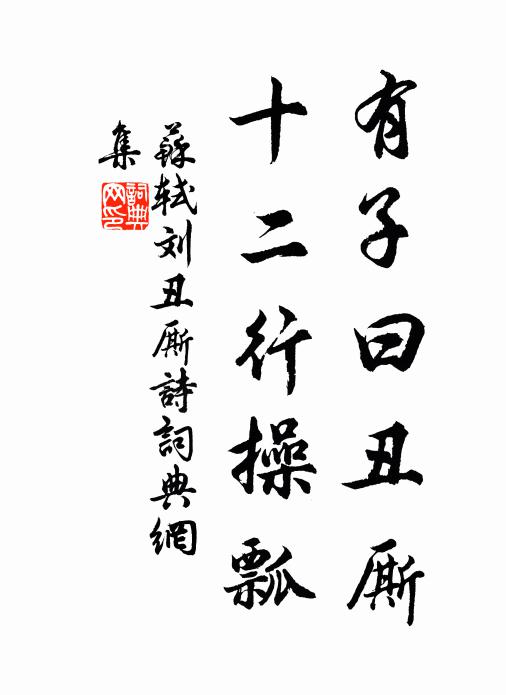 有子曰丑厮
十二行操瓢
蘇軾刘丑厮詩詞典網
集
詞典
网印